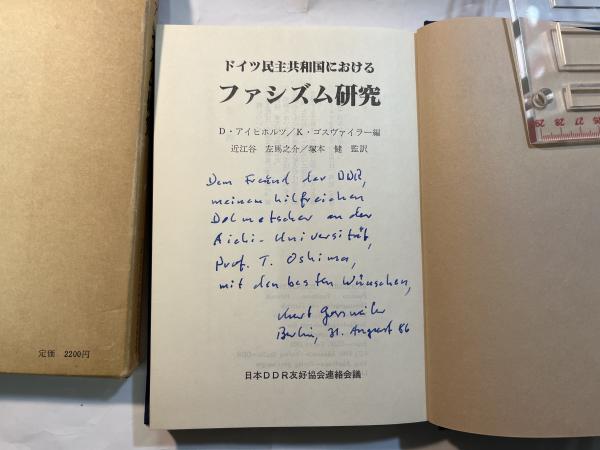 ドイツ民主共和国における
ファシズム研究
D・アイヒホルツ／K・ゴスヴァイラー編
近江谷 左馬之介／塚本 健 監訳
Dem Freund der DDR,
meinem hilfreichen
Dolmetscher an der
Aichi-Universität,
Prof. T. Oshima,
mit den besten Wünschen,
Kurt Gossweiler
Berlin, 31. August 86
日本DDR友好協会連絡会議
定価 2200円
29 28 27 26 25